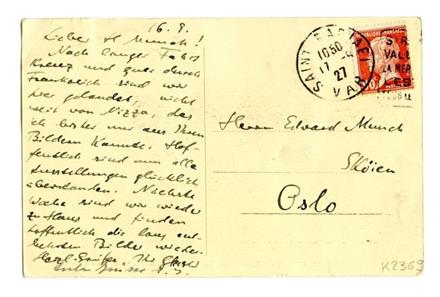 16. 9.
Lieber H Munch!
Nach langer Fahrt
Kreuz und quer durch
Frankreich sind wir
hier gelandet, nicht
weit von Nizza, das
ich bisher nur aus Ihren
Bildern kannte. Hof-
fentlich sind nun alle
Ausstellungen glücklich
überstanden. Nächste
Woche sind wir wieder
zu Haus und finden
hoffentlich die lang ent-
behrten Bilder wieder.
Herzl. Grüße Ihr
SAINT RAPHAEL
1050
17 - 9
27
VAR
LA MER
Herrn Edvard Munch
Sköien
Oslo
K2369